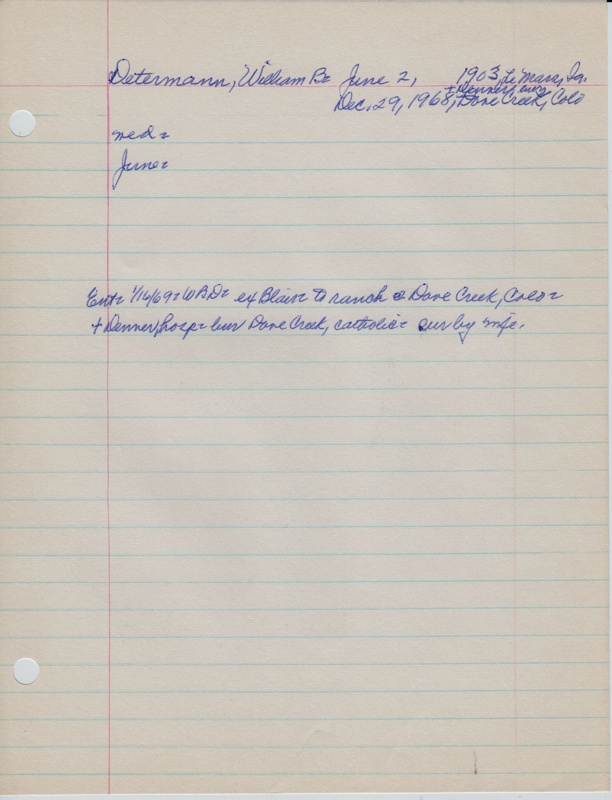 Determann, William B= June 2, 1903, Le Mars, Ia.
+Denver, bur
Dec. 29, 1968, Dove Creek, Colo
med=
June=
Ent= 1/16/69= WBD= ex Blair= to ranch @ Dove Creek, Colo=
+ Denver, hosp= bur Dove Creek, catholic= sur by wife.